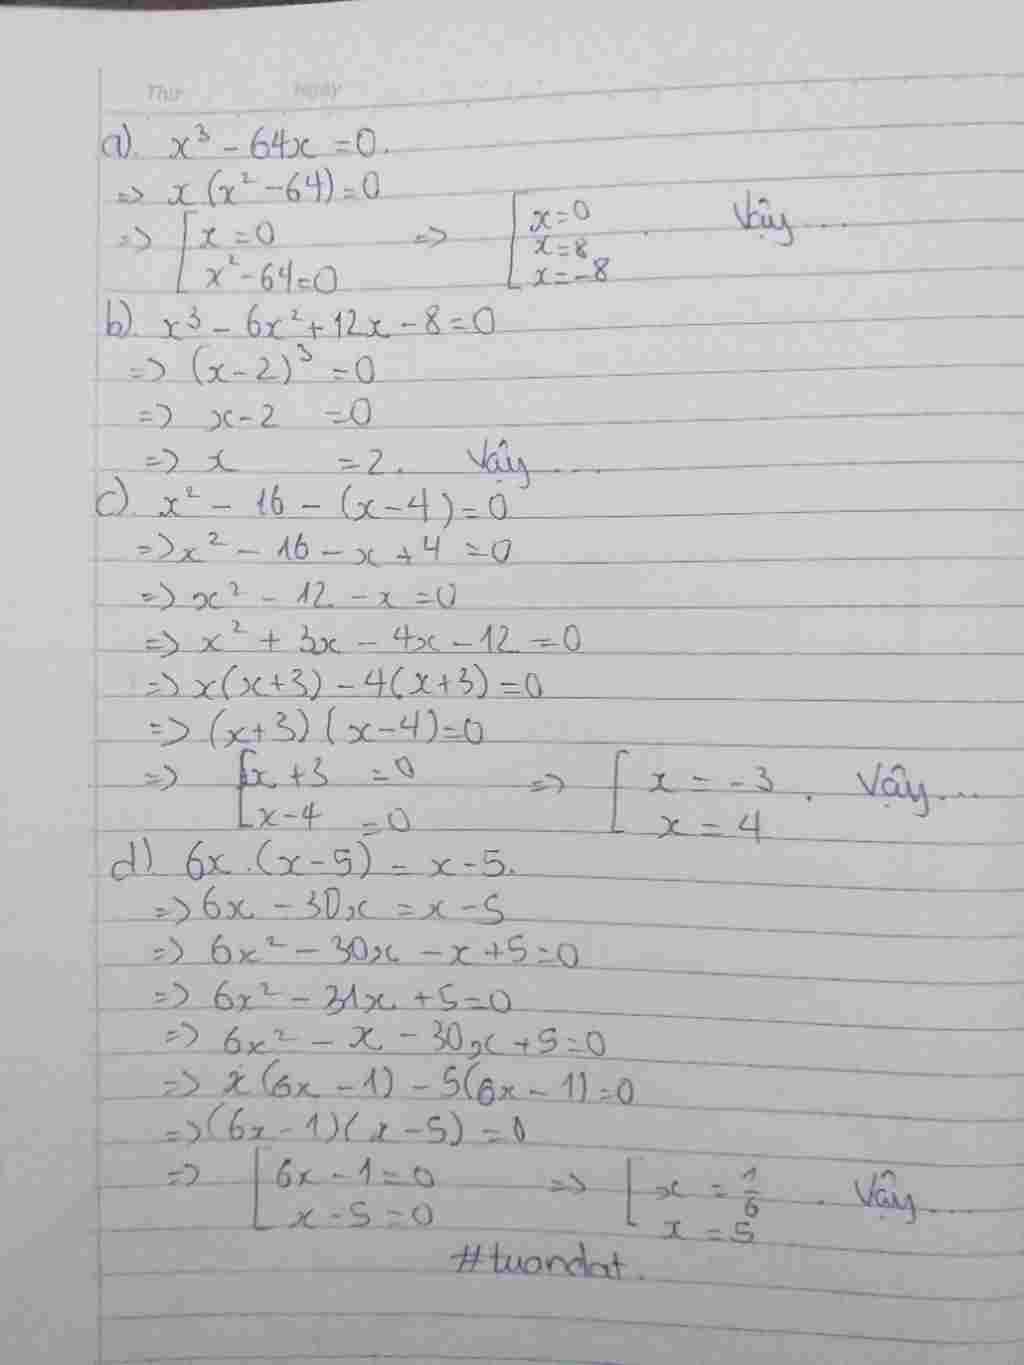 Thứ Ngày
a). x³ - 64x = 0.
=> x (x² - 64) = 0
=> [ x = 0 => [ x = 0 . Vậy ...
x² - 64 = 0 x = 8
x = -8
b). x³ - 6x² + 12x - 8 = 0
=> (x - 2)³ = 0
=> x - 2 = 0
=> x = 2. Vậy ...
c). x² - 16 - (x - 4) = 0
=> x² - 16 - x + 4 = 0
=> x² - 12 - x = 0
=> x² + 3x - 4x - 12 = 0
=> x(x + 3) - 4(x + 3) = 0
=> (x + 3) (x - 4) = 0
=> [ x + 3 = 0 => [ x = -3 . Vậy ...
x - 4 = 0 x = 4
d) 6x . (x - 5) = x - 5.
=> 6x - 30x = x - 5
=> 6x² - 30x - x + 5 = 0
=> 6x² - 31x + 5 = 0
=> 6x² - x - 30x + 5 = 0
=> x (6x - 1) - 5(6x - 1) = 0
=> (6x - 1)(x - 5) = 0
=> [ 6x - 1 = 0 => [ x = 1/6 . Vậy ...
x - 5 = 0 x = 5
#tuandat.